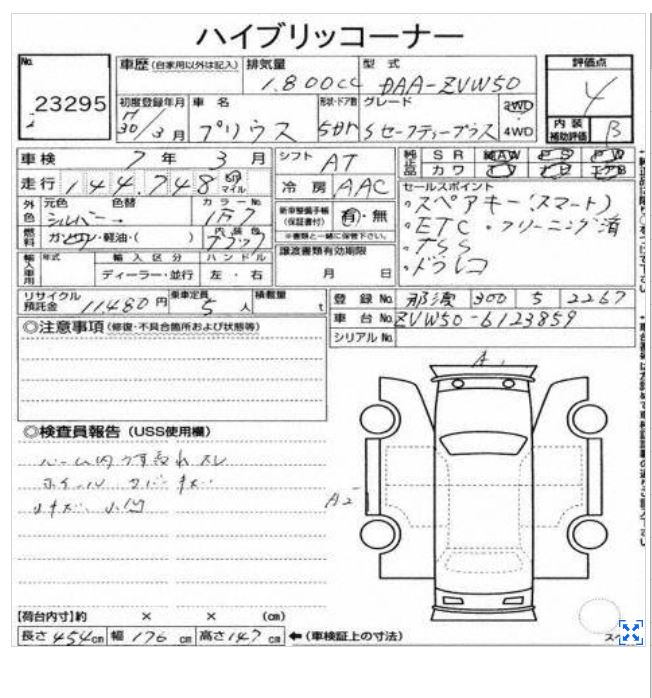 ハイブリッコーナー
No.
23295
車歴 (自家用以外は記入)
排気量
1.800cc
型式
DAA-ZVW50
評価点
4
初度登録年月
H30/3月
車名
プリウス
形状・ドア数
5DR
グレード
Sセーフティープラス
2WD
4WD
内装
補助評価
B
車検
7年 3月
シフト
AT
純正品
SR AAW PS PW
カワ エアB
走行
144,748
マイル
冷房
AAC
セールスポイント
・スペアキー(スマート)
・ETC・クリーニング済
・TSS
・ドラレコ
外色
元色
シルバー
色替
→
カラーNo.
1F7
新車整備手帳
(保証書付)
有・無
※書類と一緒に保管下さい。
燃料
ガソリン・軽油・( )
内装色
ブラック
譲渡書類有効期限
月 日
輸入車用
年式
輸入区分
ディーラー・並行
ハンドル
左・右
リサイクル預託金
11480円
乗車定員
5人
積載量
t
登録No.
那須 300 5 2267
車台No.
ZVW50-6123859
シリアルNo.
◎注意事項 (修復・不具合箇所および状態等)
◎検査員報告 (USS使用欄)
ルーム内 うす汚れ スレ
ホイールカバーキズ
小キズ 小凹
A1
A2
【荷台内寸】約 × × (cm)
長さ 454cm 幅 176cm 高さ 147cm ←(車検証上の寸法)